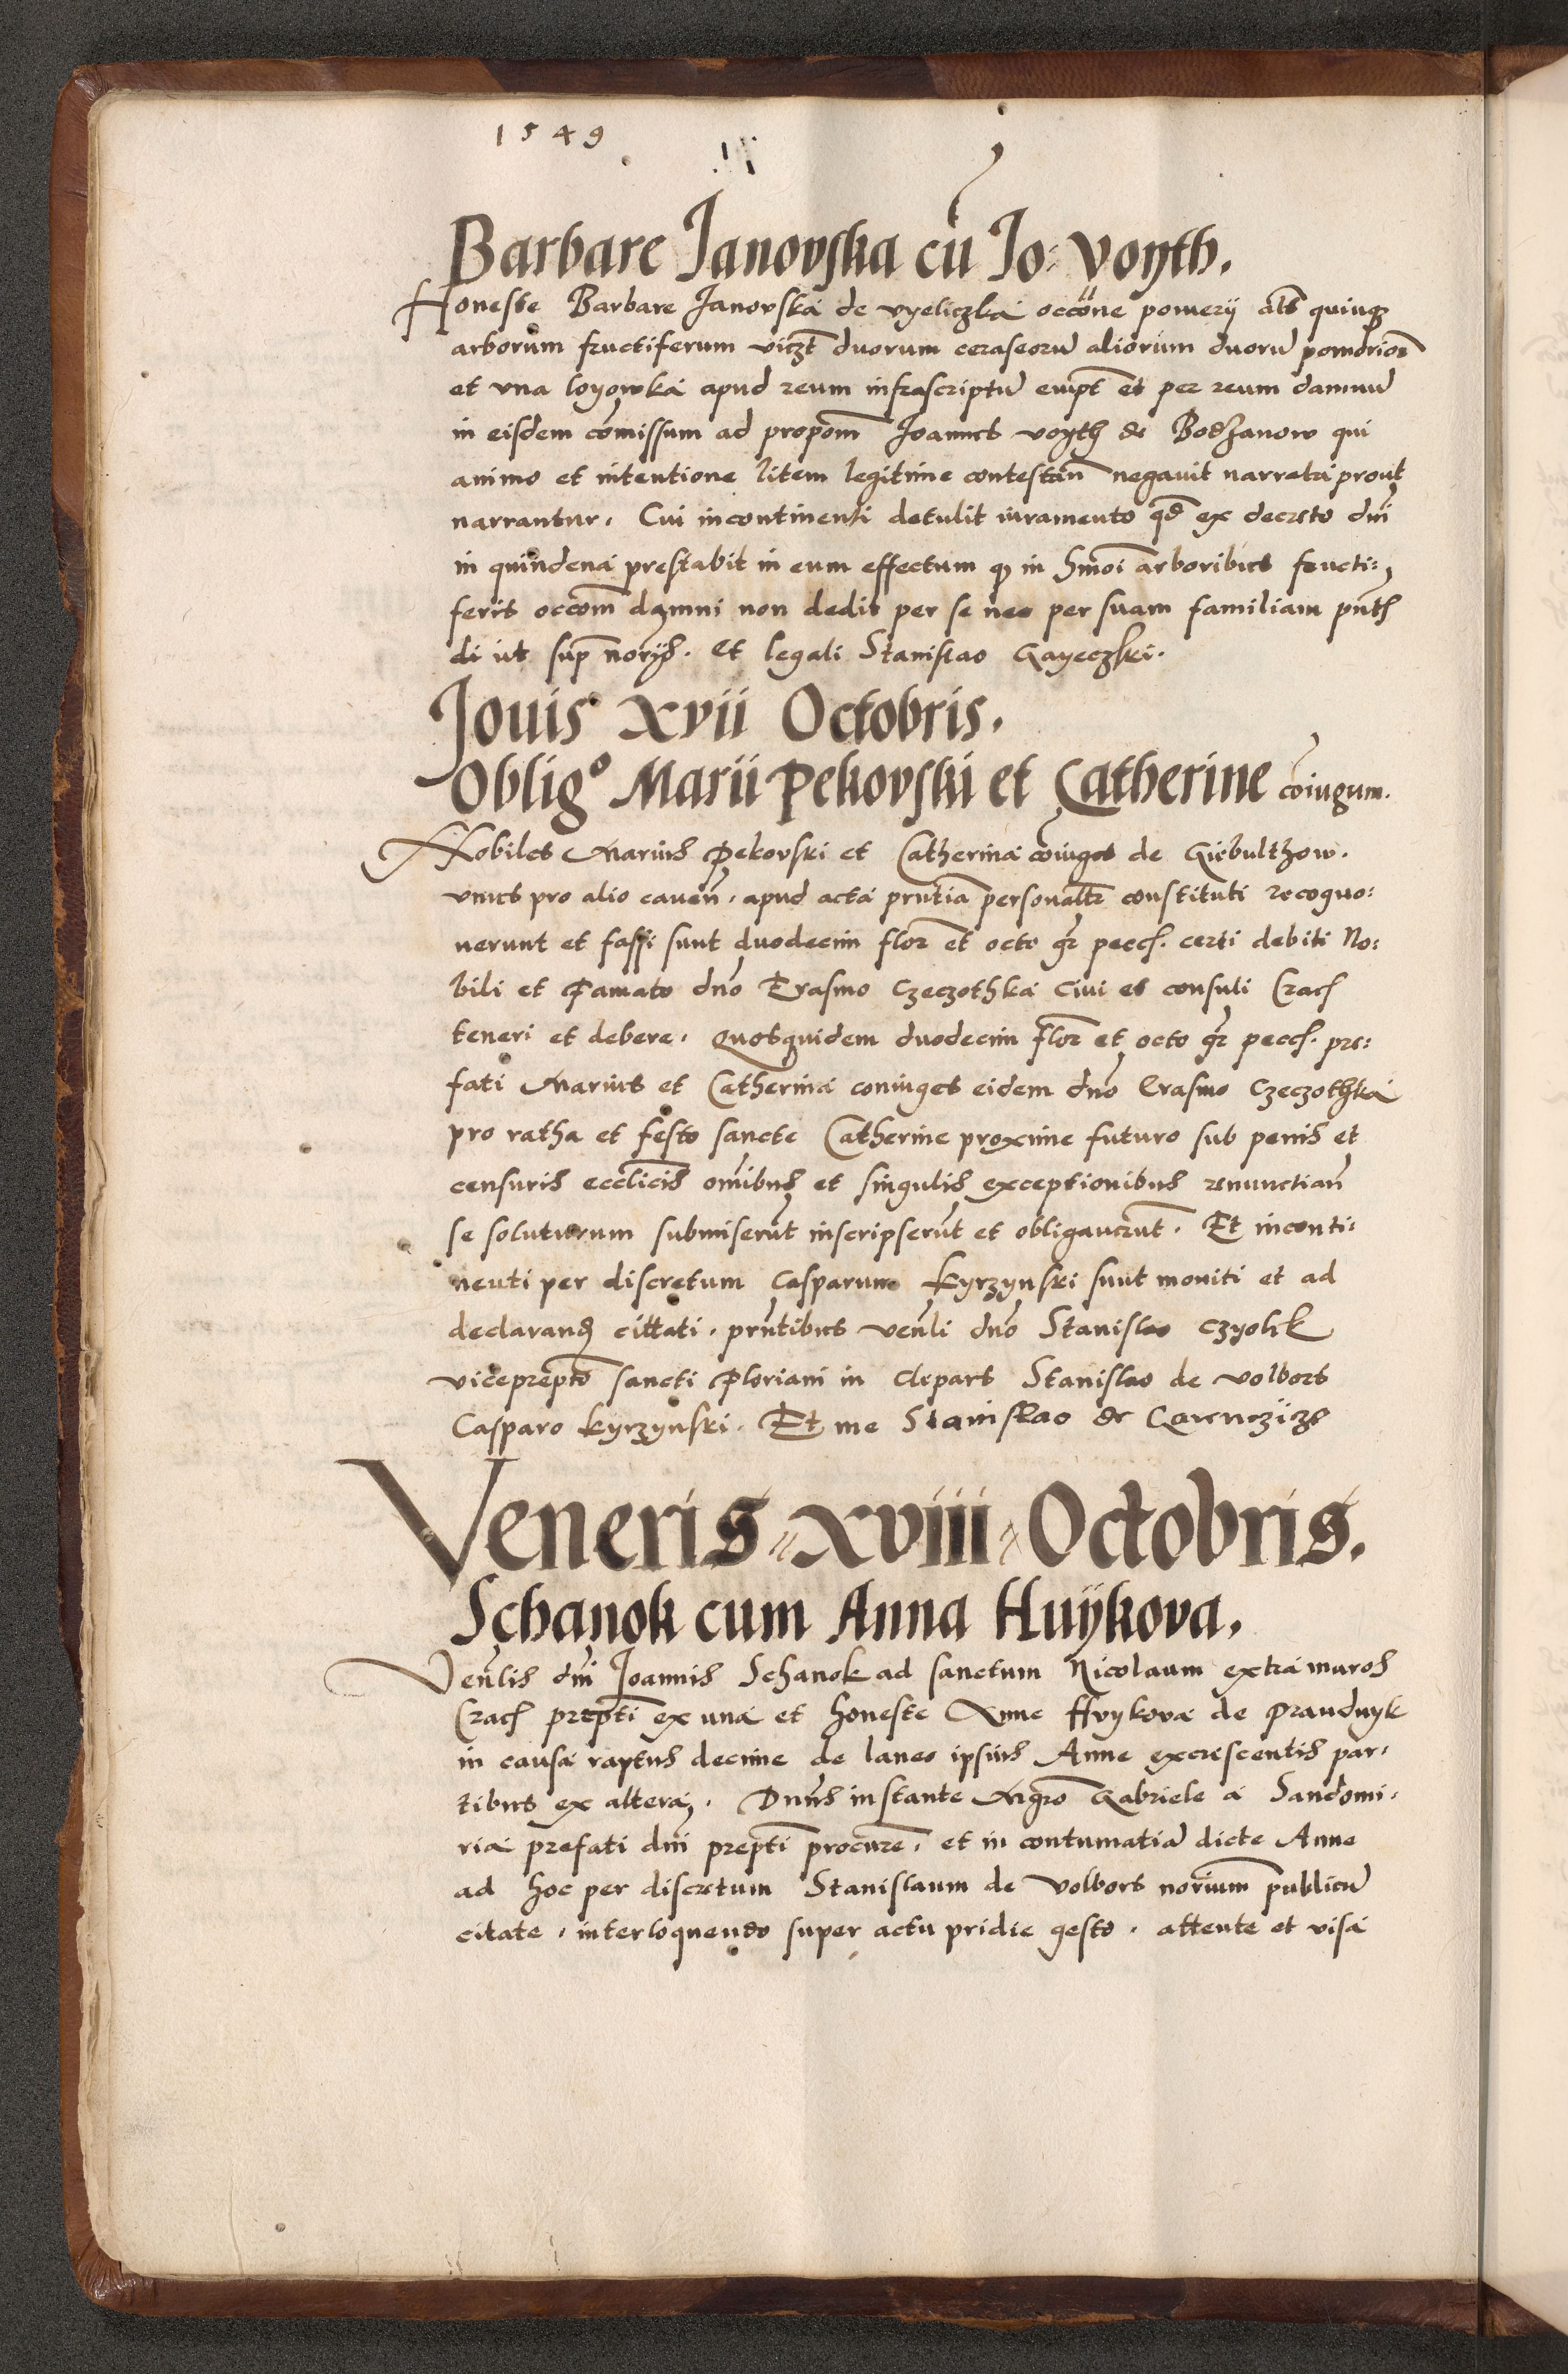 1549
Barbare Janovska cū Jo: voyth.
Honeste Barbare Janovska de vyeliczka occōne pomerij als quinqȝ
arborum fructiferum viczt duorum ceraseorū aliorum duorū pomōrion
et vna loyowka apud reum infrascriptū empt et per reum damnū
in eisdem cōmissum ad propom̄ Joannes voyth de Bodzanow qui
animo et intentione litem legitime contestan̄ negavit narrata prout
narrantur. Cui incontinenti detulit iuramento qd̄ ex decreto dnī
in quindena prestabit in eum effectum qȝ in hmoī arboribus fructi:
feris occom̄ damni non dedit per se nec per suam familiam pn̄tƷ
di ut sup̄ norijs. et legali Stanislao Gayeczski.
Jouis xvii Octobris.
Oblig° Marii Pekovski et Catherine cōiugum.
Nobiles Marius Pekovski et Catherina cōiuges de Giebulthow.
vnus pro alio caven̄. apud acta prn̄tia personaltr̄ constituti recogno:
uerunt et fassi sunt duodecim flor̄ et octo gr̄ pecch. certi debiti No:
bili et Famato dnō Erasmo Czeczothka Civi et consuli Crach
teneri et debere. Quosquidem duodecim flor̄ et octo gr̄ pecch. pre:
fati Marius et Catherina coniuges eidem dnō Erasmo Czeczothka
pro ratha et festo sancte Catherine proxime futuro sub penis et
censuris eccl̄icis om̄ibus et singulis exceptionibus renunctian̄
se soluturum submiserūt inscripserūt et obligauerūt. Et inconti:
nenti per discretum Casparum Kyrzynski sunt moniti et ad
declarand̄ cittati. prn̄tibus ven̄li dnō Stanislao Czyolik
viceprepto sancti Floriani in Clepars Stanislao de volbors
Casparo Kyrzynski. Et me Stanislao de
Veneris xviii Octobris.
Schanok cum Anna Huÿkova.
Ven̄lis dnī Joannis Schanok ad sanctum Nicolaum extra muros
Crach prepti ex una et honeste Anne Huykova de Prandnyk
in causa raptus decime de laneo ipsius Anne excrescentis par:
tibus ex altera. Dnn̄s instante Mgrō Gabriele a Sandomi:
ria prefati dnī prepti procure. et in contumatiā dicte Anne
ad hoc per discretum Stanislaum de Volbors norium̄ publicū
citate. interloquendo super actu pridie gesto. attente et visa